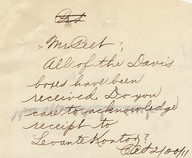 Pet
Mr. Peet:
All of the Davis
boxes have been
received. Do you
care to acknowledge
receipt to
Levante Kontor?